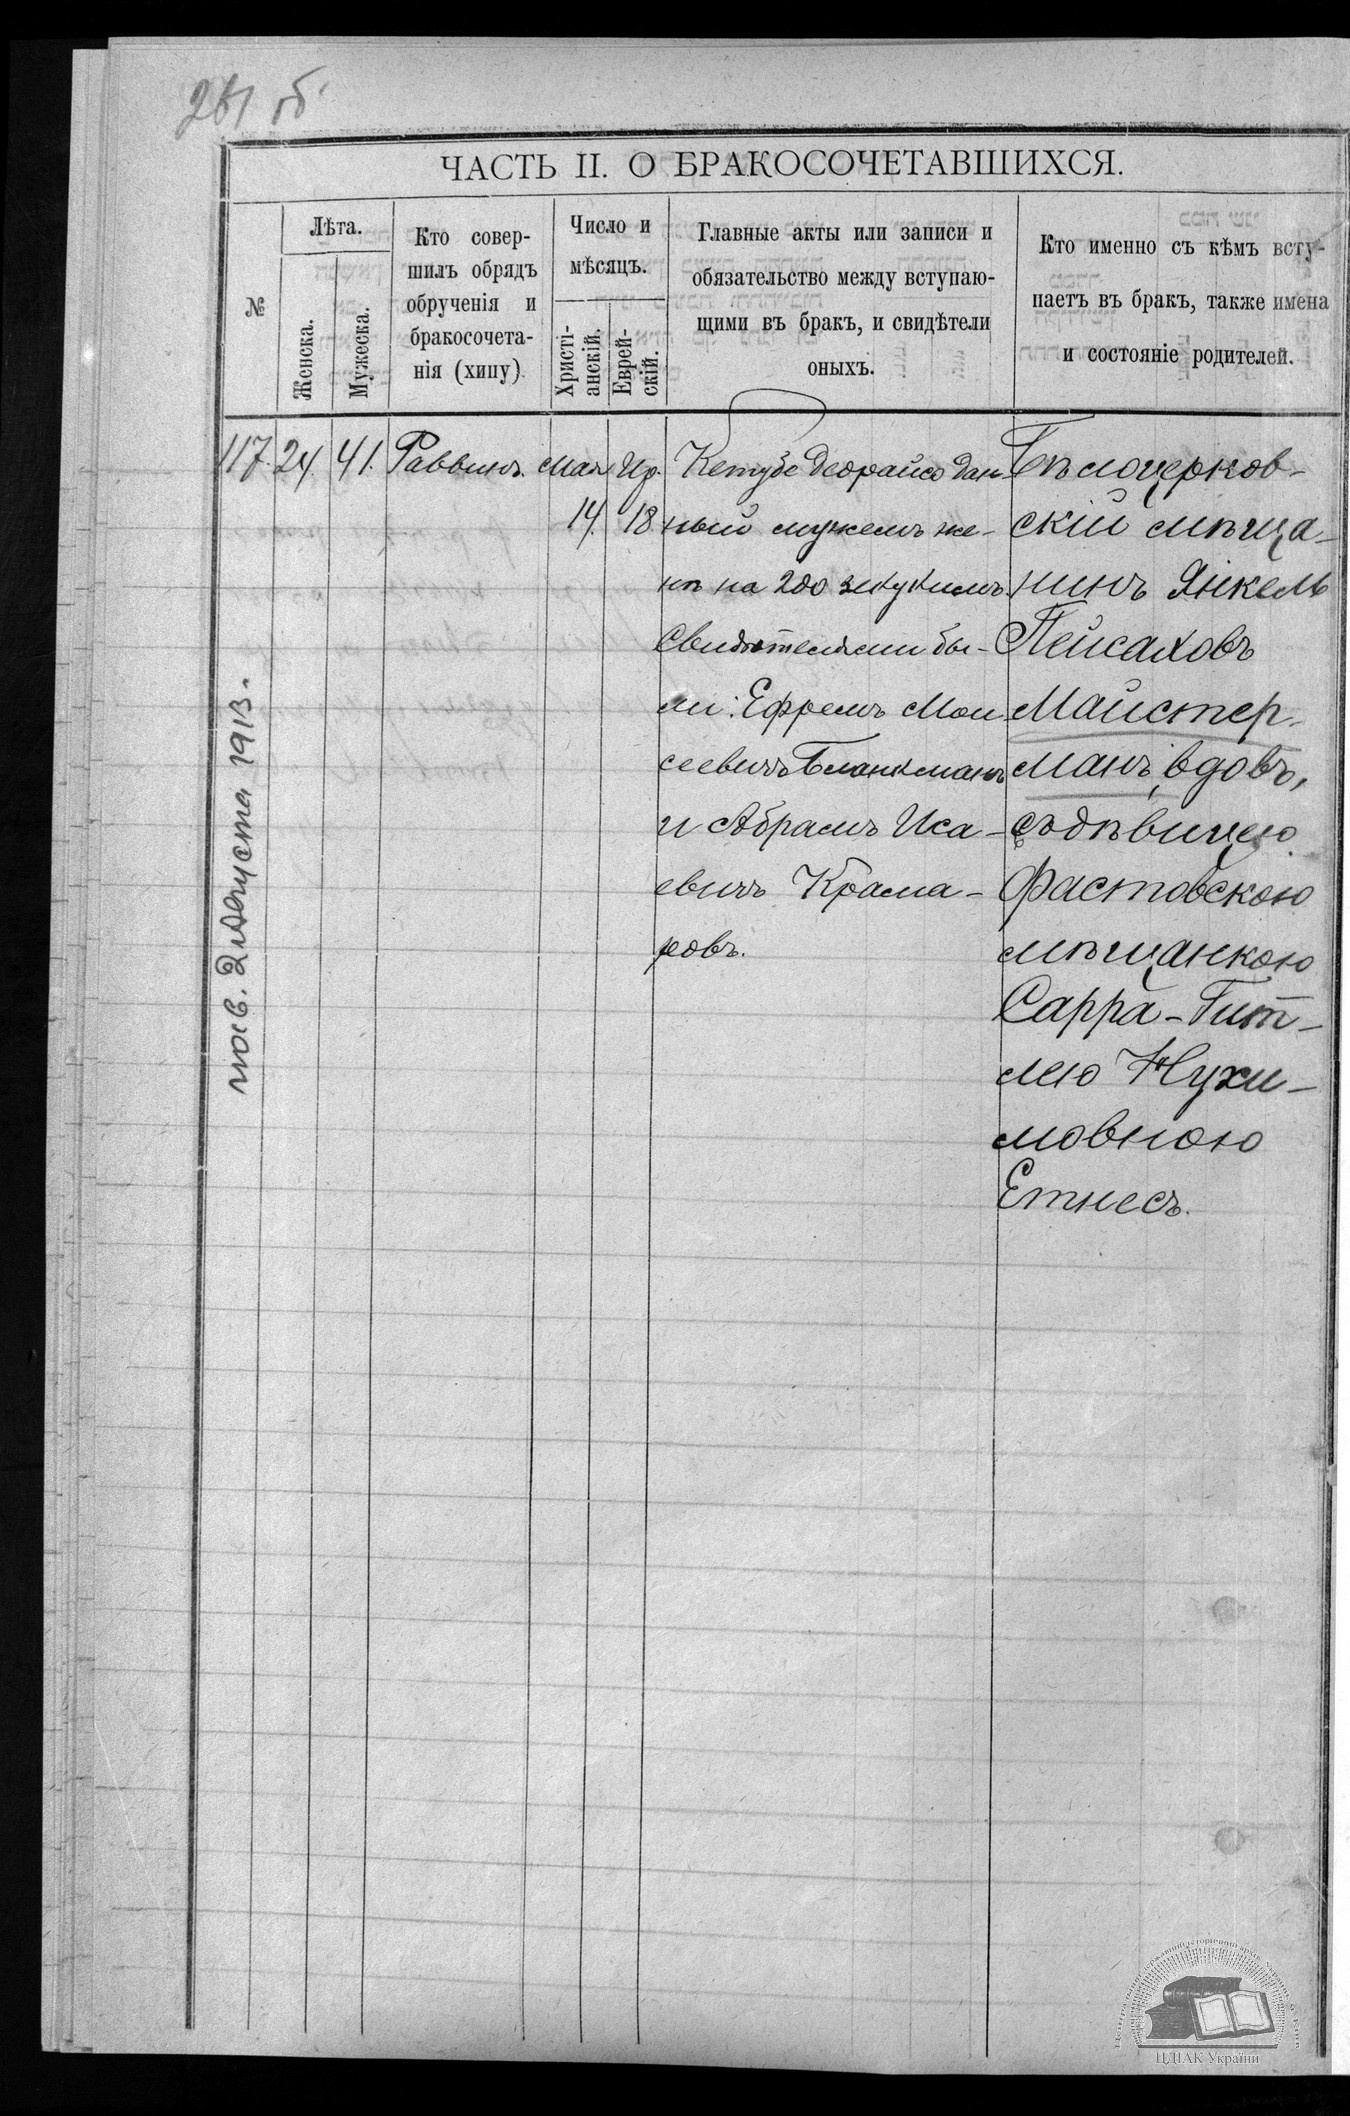 261 об.
ЧАСТЬ II. О БРАКОСОЧЕТАВШИХСЯ.
№
Лѣта.
Женска.
Мужеска.
Кто совер-
шилъ обрядъ
обрученія и
бракосочета-
нія (хипу)
Число и
мѣсяцъ.
Христі-
анскій.
Еврей-
скій.
Главные акты или записи и
обязательство между вступаю-
щими въ брак, и свидѣтели
оныхъ.
Кто именно съ кѣмъ всту-
паетъ въ брак, также имена
и состояніе родителей.
117. 24. 41. Раввинъ. Мая 14. Ир. 18
Кетубе деорайсо дан-
ный мужемъ же-
нѣ на 200 зекукимъ.
Свидѣтелями бы-
ли: Ефремъ Мои
сеевичъ Бланкманъ
и Абрамъ Иса-
евичъ Крама-
ровъ.
Бѣлоцерков-
скій мѣща-
нинъ Янкель
Пейсаховъ
Майстер-
манъ, вдовъ,
съ дѣвицею
Фастовскою
мѣщанкою
Сарра-Гит-
лею Нухи-
мовною
Етнесъ.
2 Августа 1913.
ЦДІАК України